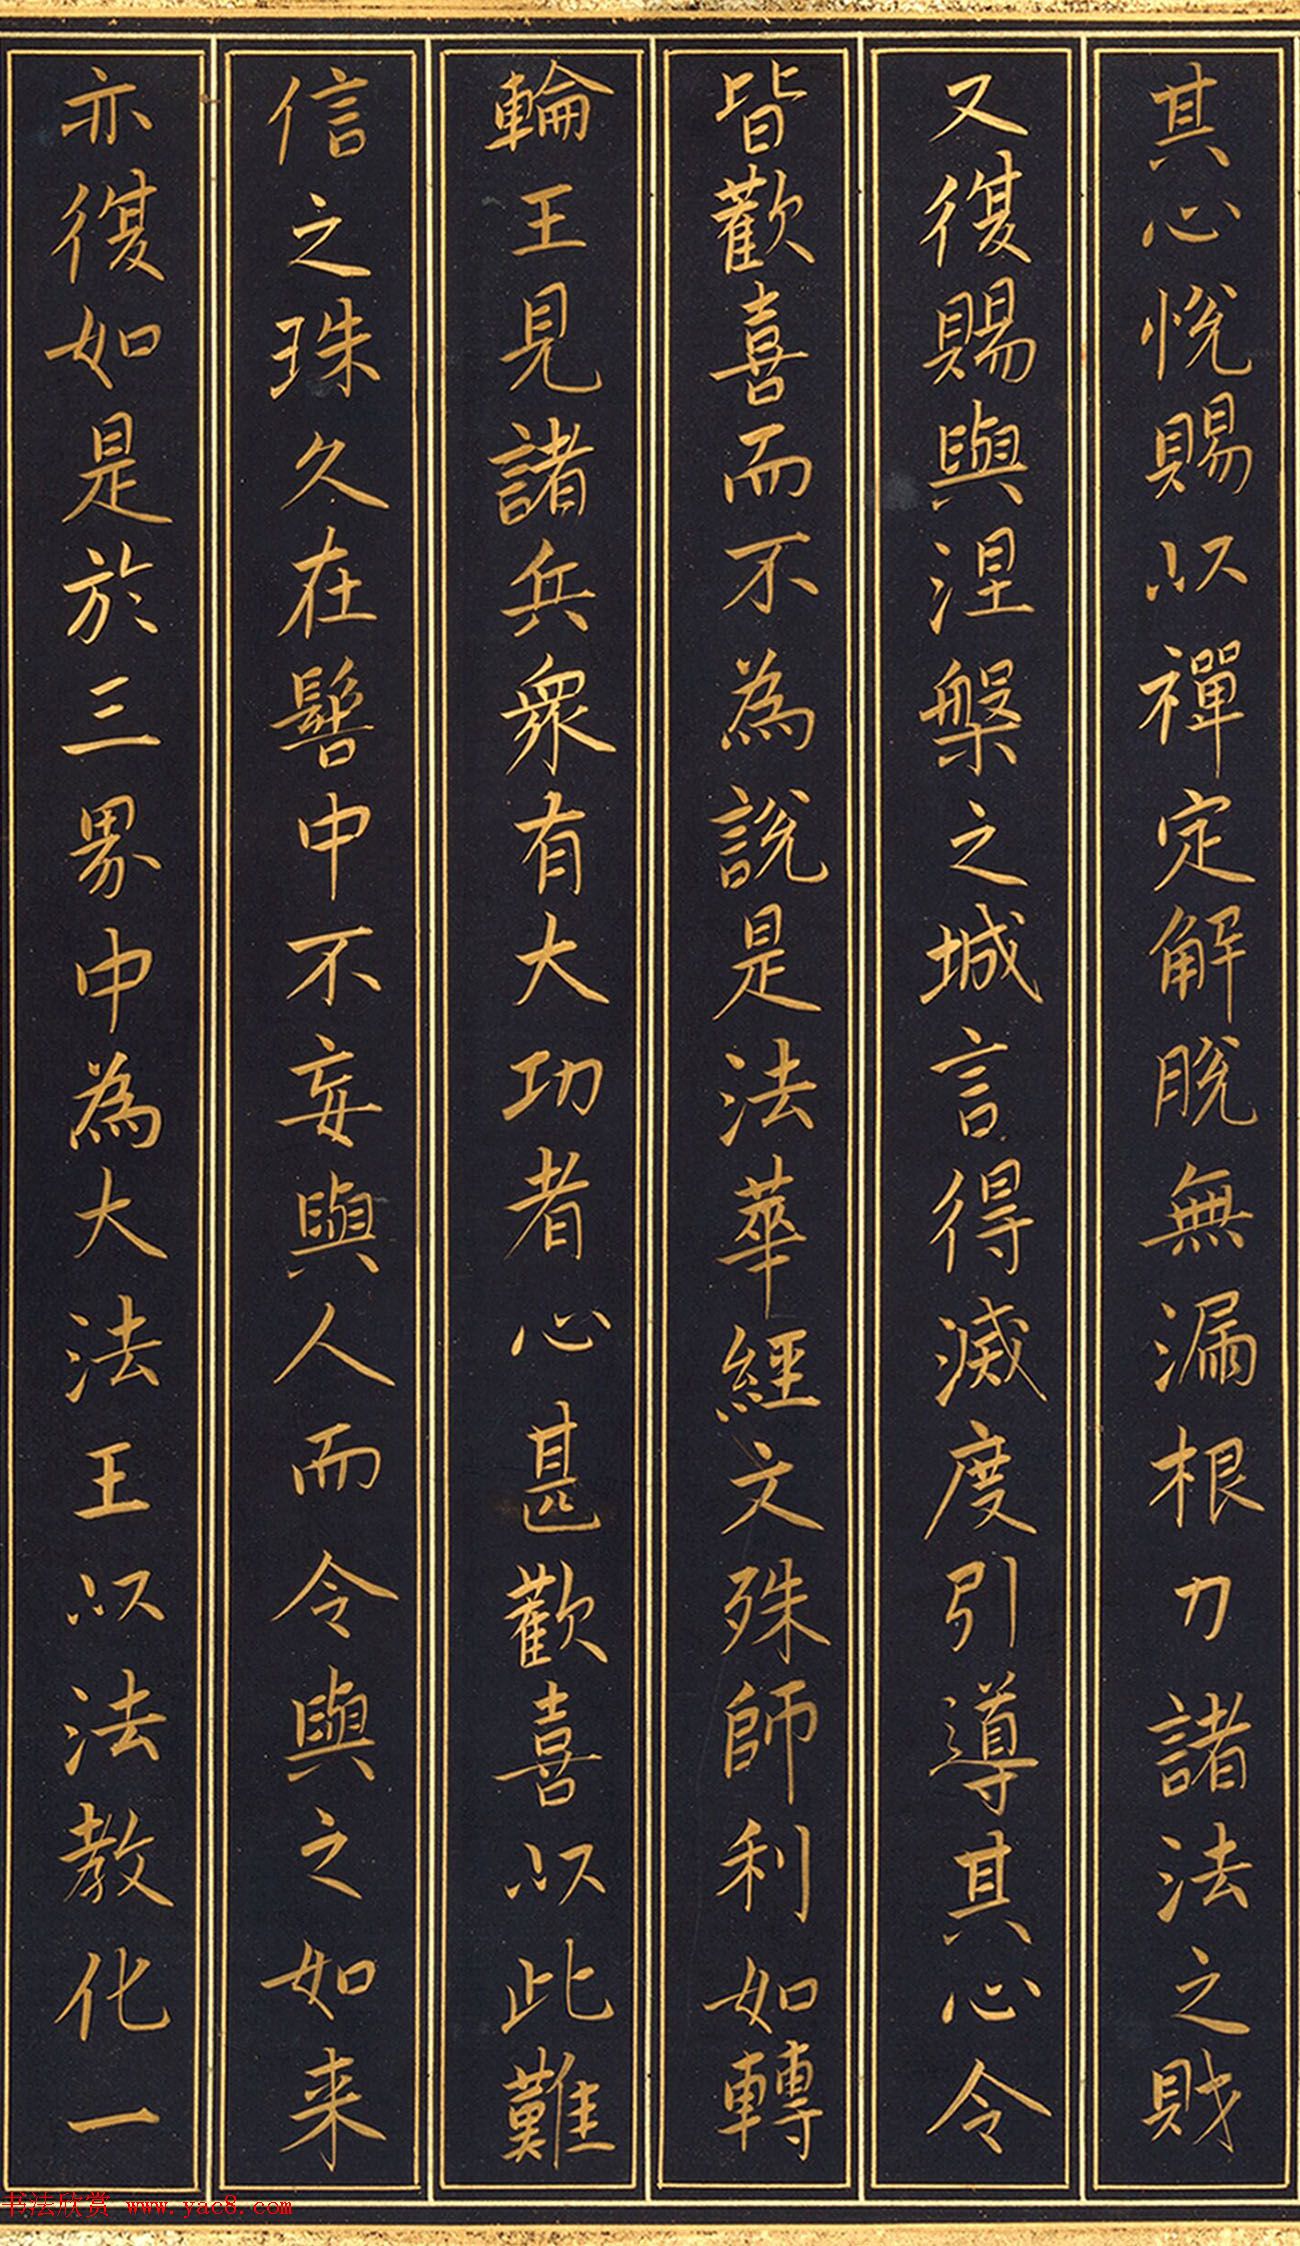 其心悅賜以禪定解脫無漏根力諸法之財
又復賜與涅槃之城言得滅度引導其心令
皆歡喜而不為說是法華經文殊師利如轉
輪王見諸兵眾有大功者心甚歡喜以此難
信之珠久在髻中不妄與人而今與之如來
亦復如是於三界中為大法王以法教化一
书法欣赏 www.yac8.com